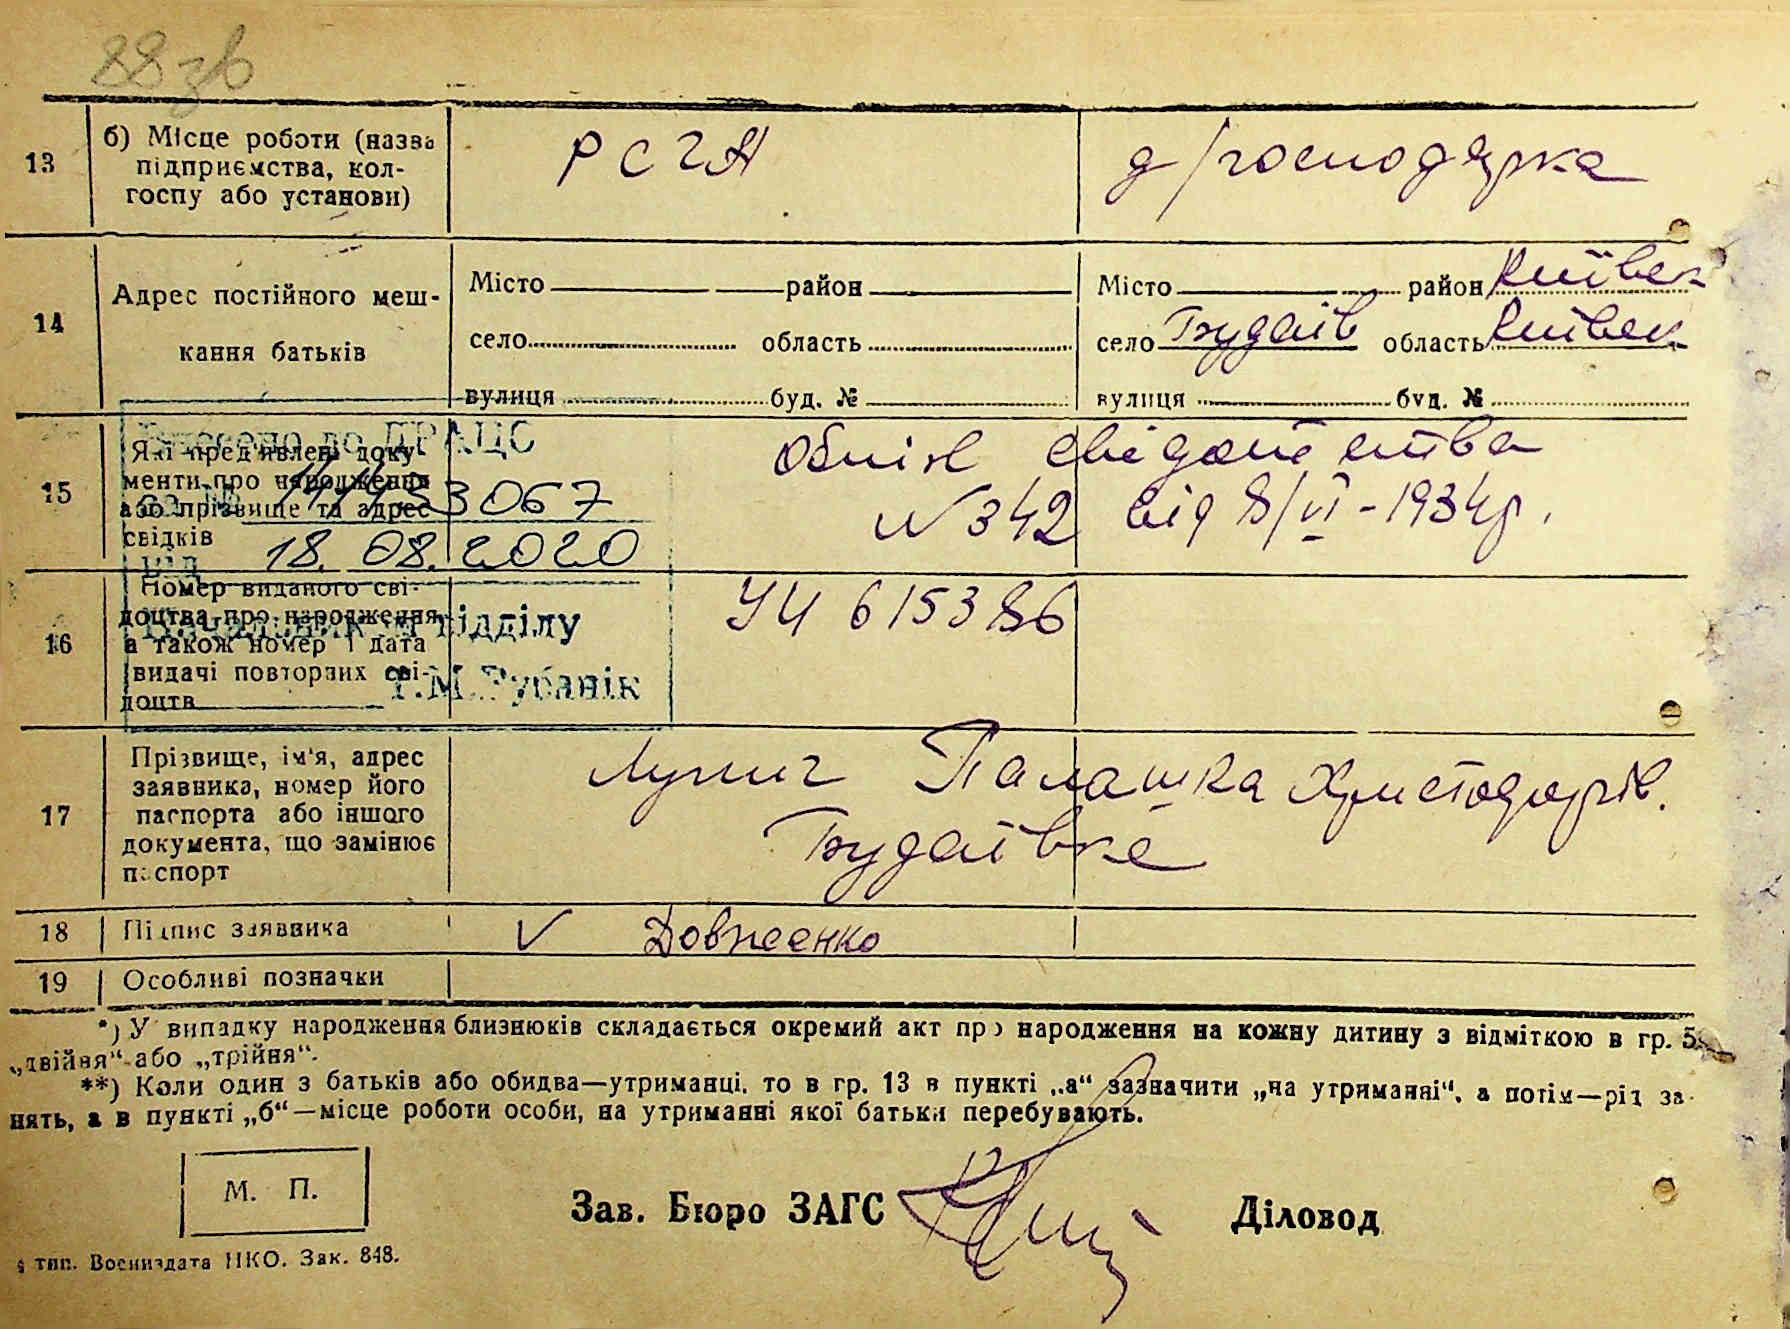 88 зв
13 б) Місце роботи (назва РСЧА д/господарка
підприємства, кол-
госпу або установи)
14 Адрес постійного меш-
кання батьків
Місто район
село область
вулиця буд. №
Місто район Київськ
село Будаїв область Київськ
вулиця буд. №
15 Які пред'явлені доку-
менти про народження
або прізвище та адрес
свідків
Обмін свідоцтва
N 342 від 8/VI-1934р.
Внесено до ДРАЦС
за № 14143 3067
від 18. 08. 2020
Начальник відділу
Т.М.Рубанік
16 Номер виданого сві-
доцтва про народження
а також номер і дата
видачі повторних сві-
доцтв
УЧ 615386
17 Прізвище, ім'я, адрес
заявника, номер його
паспорта або іншого
документа, що замінює
паспорт
Палашка Христофорів.
Будаївка
18 Підпис заявника V Довженко
19 Особливі позначки
*) У випадку народження близнюків складається окремий акт про народження на кожну дитину з відміткою в гр. 5
„двійня“ або „трійня“.
**) Коли один з батьків або обидва—утриманці, то в гр. 13 в пункті „а“ зазначити „на утриманні“, а потім—рід за-
нять, а в пункті „б“—місце роботи особи, на утриманні якої батьки перебувають.
М. П.
Зав. Бюро ЗАГС Діловод
тип. Воениздата НКО. Зак. 848.